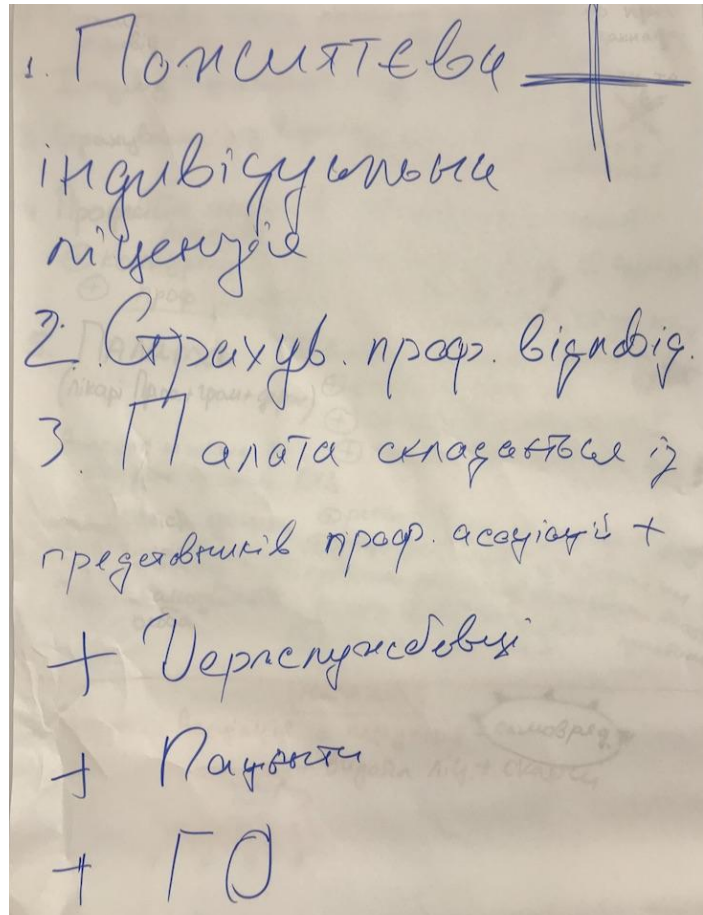 1. Пожиттєва +
індивідуальна
ліцензія
2. Страхув. проф. відповід.
3. Палата складається із
представників проф. асоціацій +
+ Держслужбовці
+ Пацієнти
+ ГО